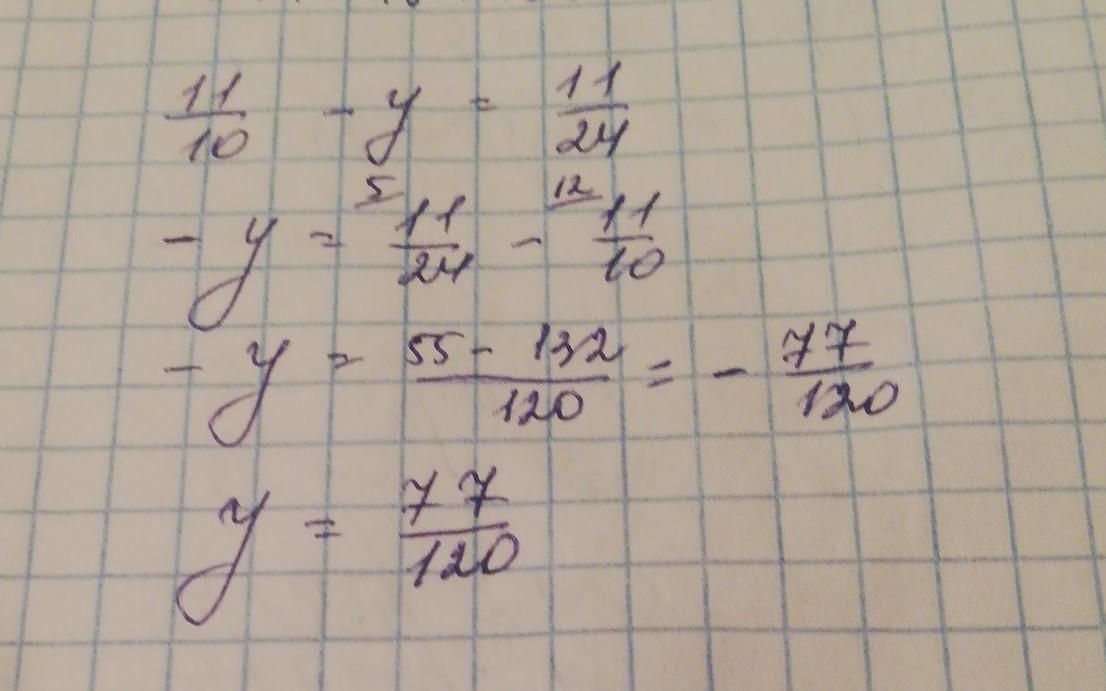 11/10 - y = 11/24
- y = 5 11/24 - 12 11/10
- y = 55 - 132/120 = - 77/120
y = 77/120